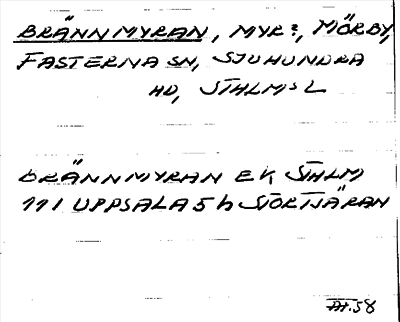 BRÄNNMYRAN, MYR?, MÖRBY,
FASTERNA SN, SJUHUNDRA
HD, STHLMS L
BRÄNNMYRAN EK STHLM
111 UPPSALA 5 h STORTJÄRAN
58